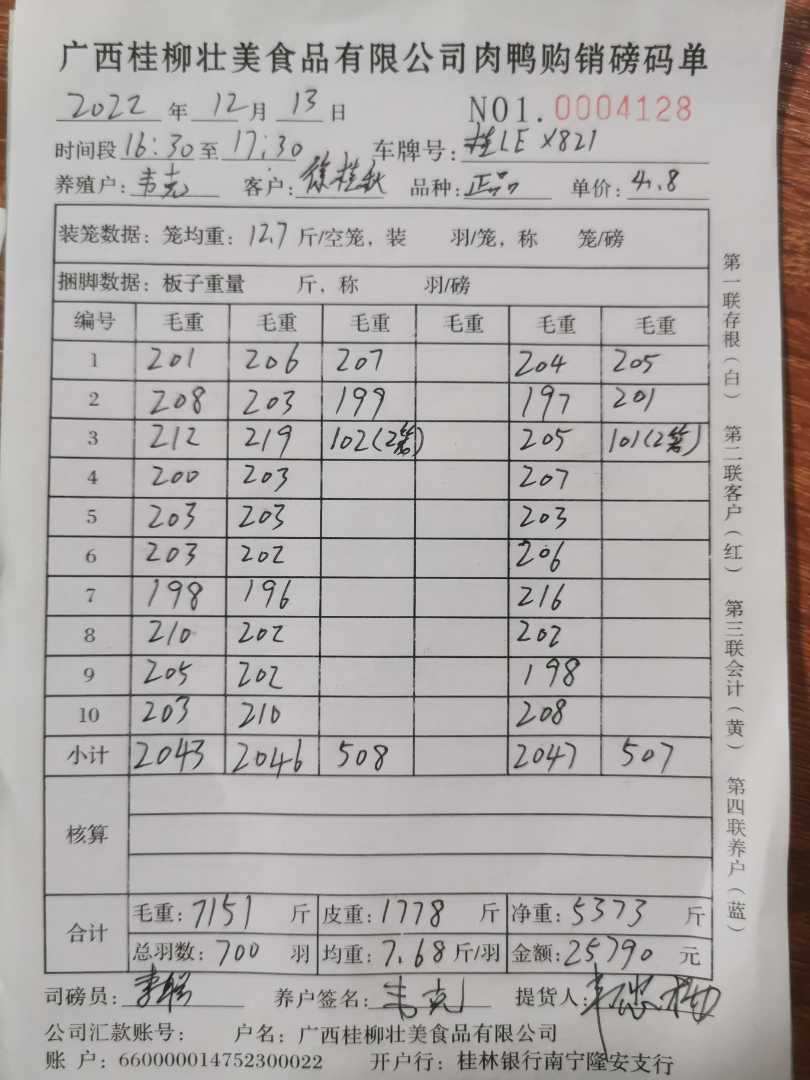 广西桂柳壮美食品有限公司肉鸭购销磅码单
2022 年 12 月 13 日 NO1.0004128
时间段 16:30 至 17:30 车牌号: 桂LE X821
养殖户: 韦克 客户: 徐桂秋 品种: 正品 单价: 4.8
装笼数据: 笼均重: 12.7 斤/空笼, 装 羽/笼, 称 笼/磅
捆脚数据: 板子重量 斤, 称 羽/磅
编号 毛重 毛重 毛重 毛重 毛重 毛重
1 201 206 207 204 205
2 208 203 199 197 201
3 212 219 102(2笼) 205 101(2笼)
4 200 203 207
5 203 203 203
6 203 202 206
7 198 196 216
8 210 202 202
9 205 202 198
10 203 210 208
小计 2043 2046 508 2047 507
核算
合计 毛重: 7151 斤 皮重: 1778 斤 净重: 5373 斤
总羽数: 700 羽 均重: 7.68 斤/羽 金额: 25790 元
司磅员: 养户签名: 韦克 提货人:
公司汇款账号: 户名: 广西桂柳壮美食品有限公司
账 户: 660000014752300022 开户行: 桂林银行南宁隆安支行
第一联存根(白) 第二联客户(红) 第三联会计(黄) 第四联养户(蓝)